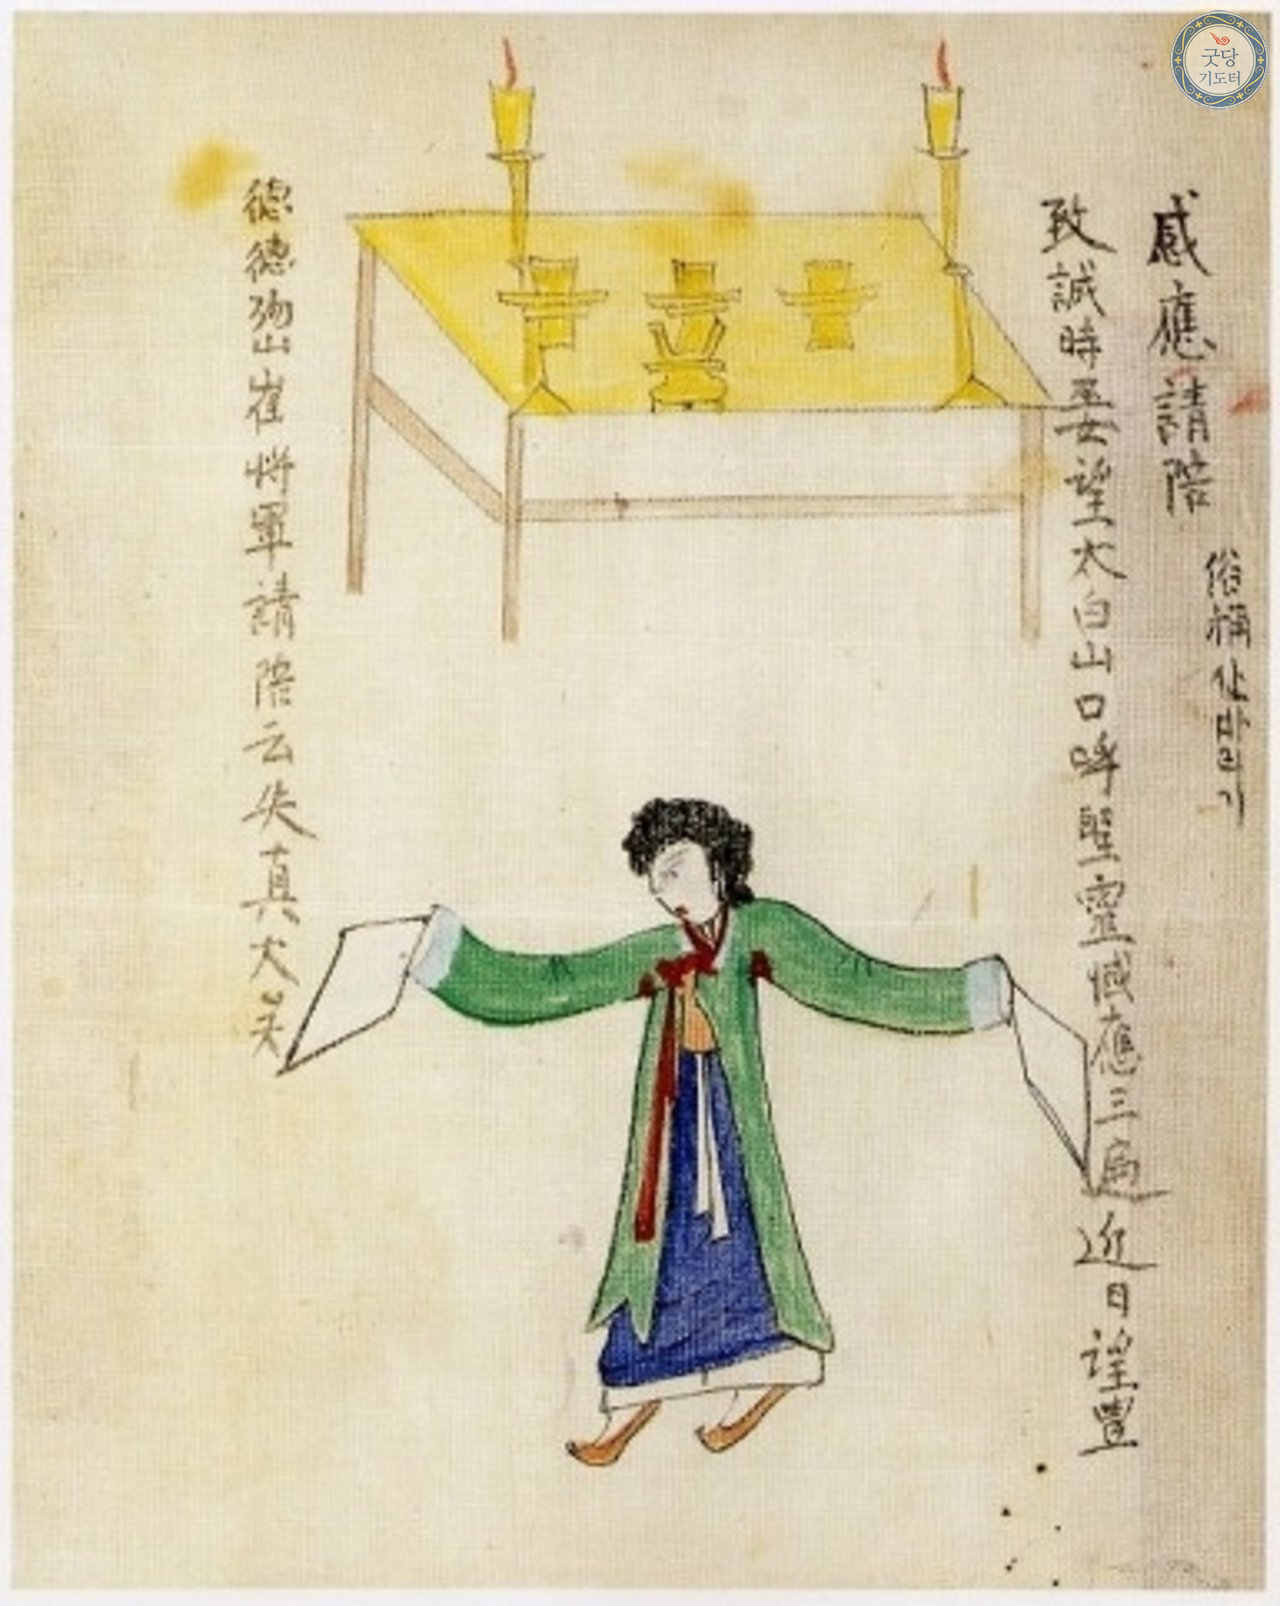 感應請陪
俗稱산바라기
致誠時巫女望太白山口呼聖靈感應三遍近日望豊
德德物山崔將軍請陪云失真大矣
굿당
기도터